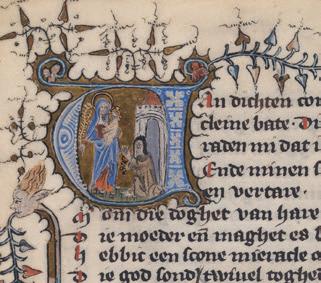 Van dichten com
cleine bate. Di
raden mi dat i
Ende minen s
en vertare.
Om die doghet van hare
Die moeder en̄ maghet es b
Hebbic een scone miracle o
Die god sond twiuel toghed